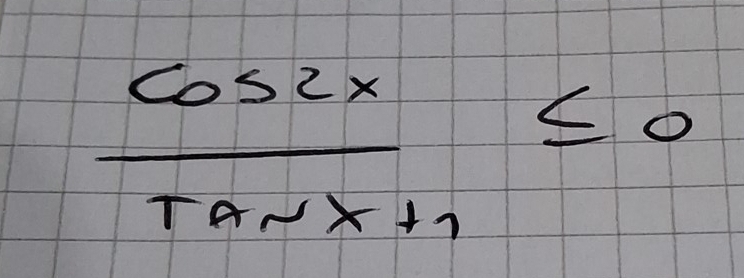 cos2x
TANX+1
≤ 0